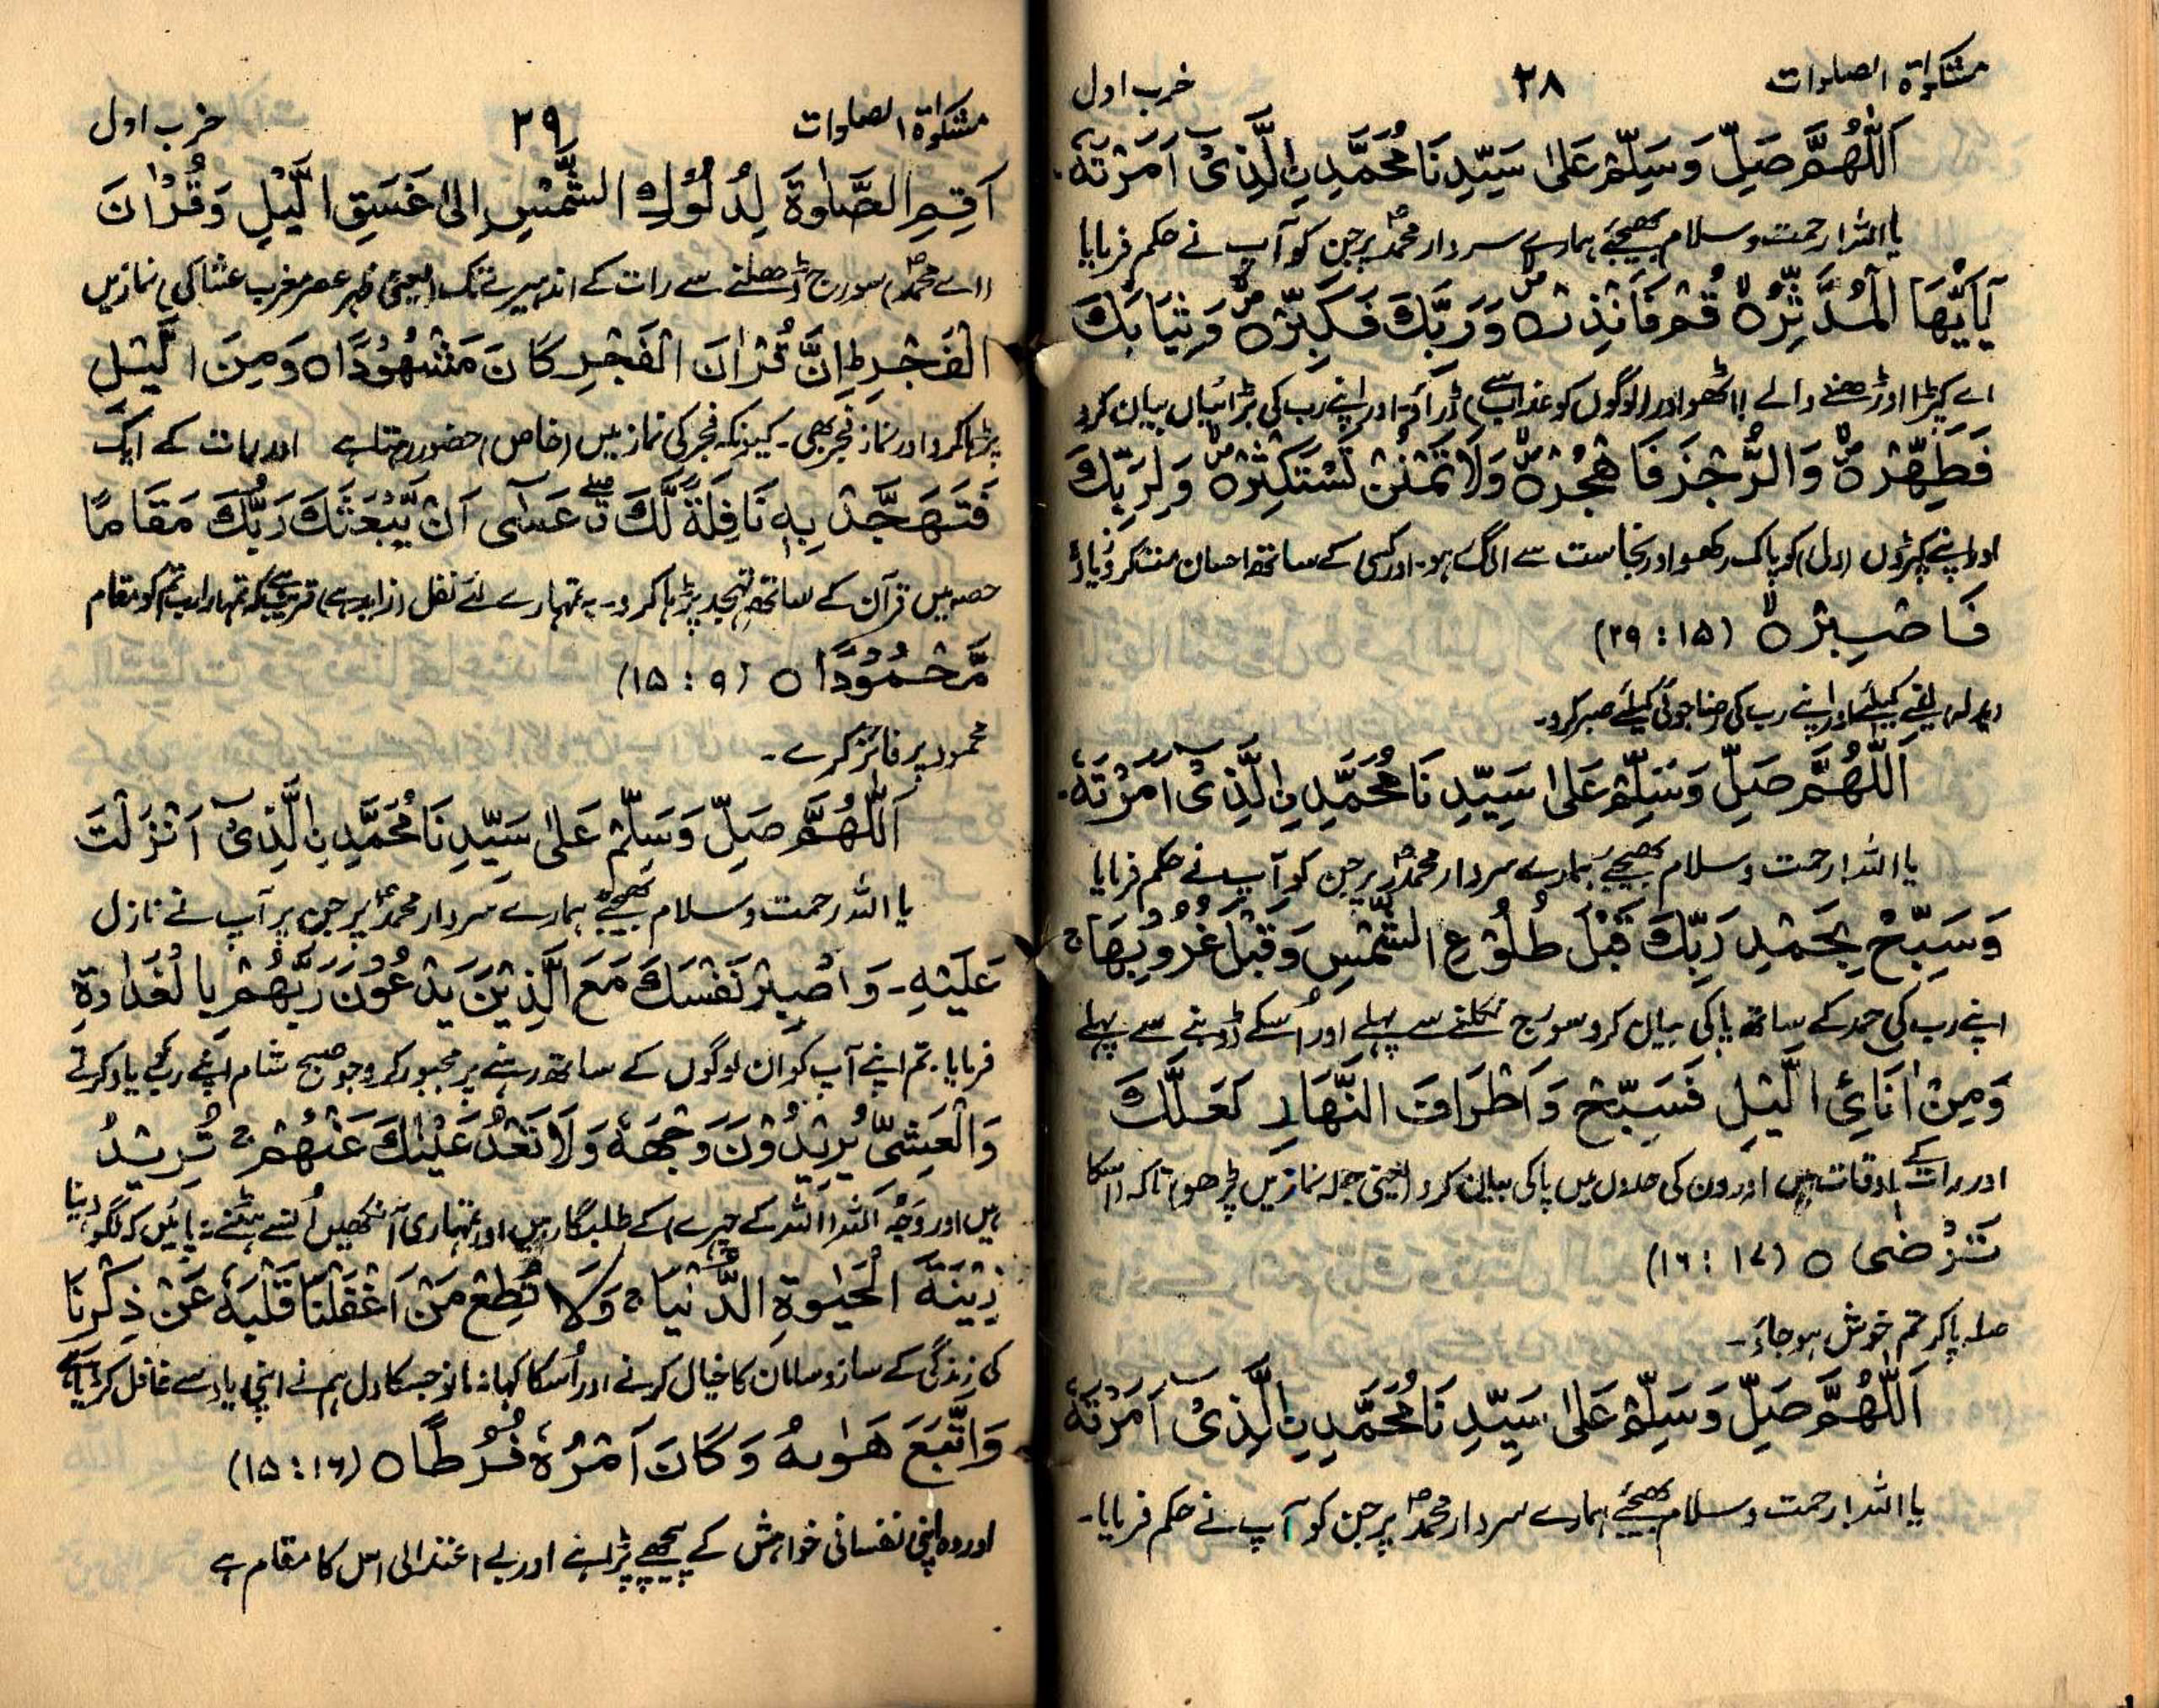 مشکوٰۃ الصلوات ۲۸ حزب اول
اَللّٰهُمَّ صَلِّ وَسَلِّمْ عَلٰى سَيِّدِنَا مُحَمَّدِ نِ الَّذِىْٓ اَمَرْتَهٗ
یا اللہ! رحمت و سلام بھیجئے ہمارے سردار محمدؐ پر جن کو آپ نے حکم فرمایا
يٰٓاَيُّهَا الْمُدَّثِّرُ ۙ قُمْ فَاَنْذِرْ ۙ وَرَبَّكَ فَكَبِّرْ ۙ وَثِيَابَكَ
اے کپڑا اوڑھنے والے! اٹھو اور (لوگوں کو عذاب سے) ڈراؤ اور اپنے رب کی بڑائیاں بیان کرو
فَطَهِّرْ ۙ وَالرُّجْزَ فَاهْجُرْ ۙ وَلَا تَمْنُنْ تَسْتَكْثِرُ ۙ وَلِرَبِّكَ
اور اپنے کپڑوں (دل) کو پاک رکھو اور نجاست سے الگ رہو۔ اور کسی کے ساتھ احسان مت کرو زیادہ
فَاصْبِرْ ۙ (۲۹ : ۱۵)
(بدلہ) لینے کیلئے اور اپنے رب کی رضا جوئی کیلئے صبر کرو۔
اَللّٰهُمَّ صَلِّ وَسَلِّمْ عَلٰى سَيِّدِنَا مُحَمَّدِ نِ الَّذِىْٓ اَمَرْتَهٗ
یا اللہ! رحمت و سلام بھیجئے ہمارے سردار محمدؐ پر جن کو آپ نے حکم فرمایا
وَسَبِّحْ بِحَمْدِ رَبِّكَ قَبْلَ طُلُوْعِ الشَّمْسِ وَقَبْلَ غُرُوْبِهَا ج
اپنے رب کی حمد کے ساتھ پاکی بیان کرو سورج نکلنے سے پہلے اور اُسکے ڈوبنے سے پہلے
وَمِنْ اٰنَائِ الَّيْلِ فَسَبِّحْ وَاَطْرَافَ النَّهَارِ لَعَلَّكَ
اور رات کے اوقات میں اور دن کی حدوں میں پاکی بیان کرو (یعنی جملہ نمازیں پڑھو) تاکہ (اسکا
تَرْضٰى ○ (۱۶ : ۱۷)
صلہ پاکر تم خوش ہو جاؤ۔
اَللّٰهُمَّ صَلِّ وَسَلِّمْ عَلٰى سَيِّدِنَا مُحَمَّدِ نِ الَّذِىْٓ اَمَرْتَهٗ
یا اللہ! رحمت و سلام بھیجئے ہمارے سردار محمدؐ پر جن کو آپ نے حکم فرمایا۔
مشکوٰۃ الصلوات ۲۹ حزب اول
اَقِمِ الصَّلٰوةَ لِدُلُوْكِ الشَّمْسِ اِلٰى غَسَقِ الَّيْلِ وَقُرْاٰنَ
(اے محمدؐ) سورج ڈھلنے سے رات کے اندھیرے تک (یعنی ظہر عصر مغرب عشا کی) نمازیں
الْفَجْرِ ط اِنَّ قُرْاٰنَ الْفَجْرِ كَانَ مَشْهُوْدًا ○ وَمِنَ الَّيْلِ
پڑھا کرو اور نماز فجر بھی۔ کیونکہ فجر کی نماز میں (خاص) حضور رہتا ہے اور رات کے ایک
فَتَهَجَّدْ بِهٖ نَافِلَةً لَّكَ ق عَسٰٓى اَنْ يَّبْعَثَكَ رَبُّكَ مَقَامًا
حصہ میں قرآن کے ساتھ تہجد پڑھا کرو۔ یہ تمہارے لئے نفل (زاید ہے) قریب ہے کہ تمہارا رب تم کو مقام
مَّحْمُوْدًا ○ (۹ : ۱۵)
محمود پر فائز کرے۔
اَللّٰهُمَّ صَلِّ وَسَلِّمْ عَلٰى سَيِّدِنَا مُحَمَّدِ نِ الَّذِىْٓ اَنْزَلْتَ
یا اللہ رحمت و سلام بھیجئے ہمارے سردار محمدؐ پر جن پر آپ نے نازل
عَلَيْهِ۔ وَاصْبِرْ نَفْسَكَ مَعَ الَّذِيْنَ يَدْعُوْنَ رَبَّهُمْ بِالْغَدٰوةِ
فرمایا۔ تم اپنے آپ کو ان لوگوں کے ساتھ رہنے پر مجبور کرو جو صبح شام اپنے رب کو یاد کرتے
وَالْعَشِىِّ يُرِيْدُوْنَ وَجْهَهٗ وَلَا تَعْدُ عَيْنٰكَ عَنْهُمْ ج تُرِيْدُ
ہیں اور وجْہ اللہ (اللہ کے چہرے) کے طلبگار ہیں اور تمہاری آنکھیں اُنسے ہٹنے نہ پائیں کہ لگو دنیا
زِيْنَةَ الْحَيٰوةِ الدُّنْيَا ج وَلَا تُطِعْ مَنْ اَغْفَلْنَا قَلْبَهٗ عَنْ ذِكْرِنَا
کی زندگی کے ساز و سامان کا خیال کرنے اور اُسکا کہا نہ مانو جسکا دل ہم نے اپنی یاد سے غافل کر دیا ہے
وَاتَّبَعَ هَوٰىهُ وَكَانَ اَمْرُهٗ فُرُطًا ○ (۱۶ : ۱۵)
اور وہ اپنی نفسانی خواہش کے پیچھے پڑا ہے اور بے اعتدالی اس کا مقام ہے